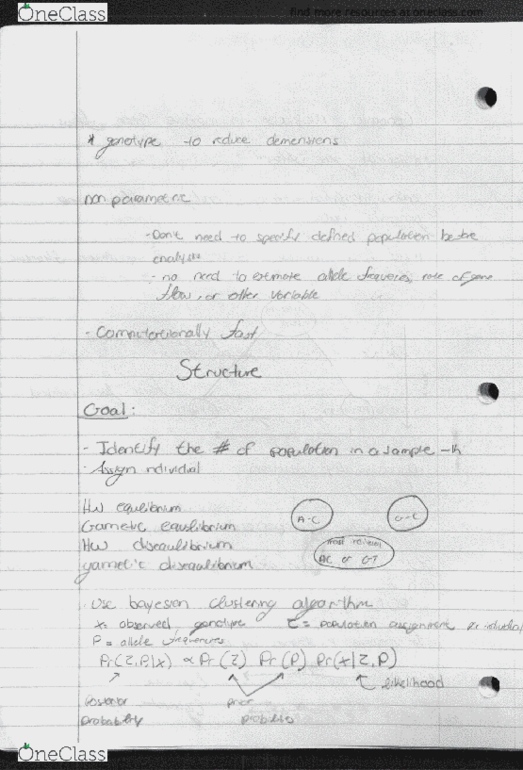 OneClass
find more resources at oneclass.com
* genotype to reduce demensions
non parametric
- Don't need to specify defined population before
analysis
- no need to estimate allele frequencies, rate of gene
flow, or other variable
- Computationally fast
Structure
Goal:
- Identify the # of population in a sample - k
- Assign individual
HW equilibrium
A-C
G-C
Gametic equilibrium
HW disequilibrium
gametic disequilibrium
AC or GT
Use bayesian clustering algorithm
x = observed genotype Z = population assignment
P = allele frequencies
Pr(Z,P|x) ∝ Pr(Z) Pr(P) Pr(x|Z,P)
likelihood
posterior prior
probability
OneClass